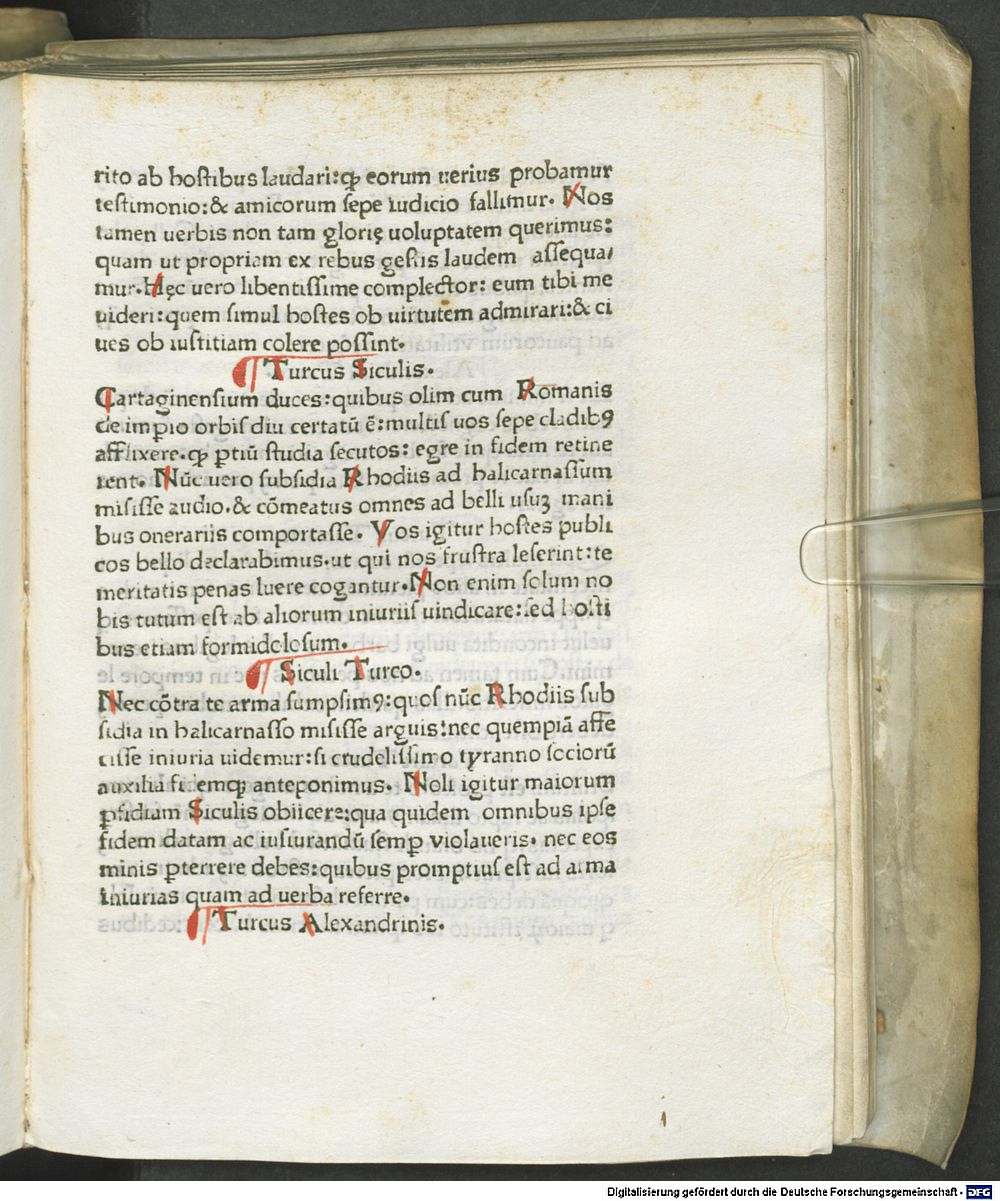 rito ab hostibus laudari:ꝙ eorum uerius probamur
testimonio:& amicorum sepe iudicio fallimur. Nos
tamen uerbis non tam glorię uoluptatem querimus:
quam ut propriam ex rebus gestis laudem assequa/
mur. Hęc uero libentissime complector: eum tibi me
uideri:quem simul hostes ob uirtutem admirari:& ci
ues ob iustitiam colere possint.
¶ Turcus Siculis.
Cartaginensium duces:quibus olim cum Romanis
de imꝑio orbis diu certatū ē:multis uos sepe cladibꝰ
afflixere.ꝙ ꝑtiū studia secutos: egre in fidem retine
rent. Nūc uero subsidia Rhodiis ad halicarnassum
misisse audio.& cōmeatus omnes ad belli usuꝫ mani
bus onerariis comportasse. Vos igitur hostes publi
cos bello declarabimus.ut qui nos frustra leserint:te
meritatis penas luere cogantur. Non enim solum no
bis tutum est ab aliorum iniuriis uindicare:sed hosti
bus etiam formidolosum.
¶ Siculi Turco.
Nec cōtra te arma sumpsimꝰ:quos nūc Rhodiis sub
sidia in halicarnasso misisse arguis:nec quempiā affe
cisse iniuria uidemur:si crudelissimo tyranno sociorū
auxilia fidemqꝫ anteponimus. Noli igitur maiorum
ꝑfidiam Siculis obiicere:qua quidem omnibus ipse
fidem datam ac iusiurandū semꝑ violaueris. nec eos
minis ꝑterrere debes:quibus promptius est ad arma
iniurias quam ad uerba referre.
¶ Turcus Alexandrinis.
1
Digitalisierung gefördert durch die Deutsche Forschungsgemeinschaft - DFG